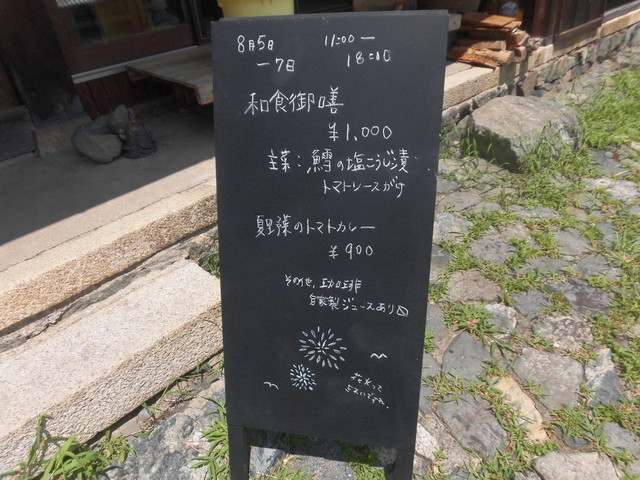 8月5日 11:00ー
ー7日 18:00
和食御膳
¥1,000
主菜:鱈の塩こうじ漬
トマトソースがけ
夏野菜のトマトカレー
¥900
その他、珈琲
自家製ジュースあり〼
花火って
きれいですね。